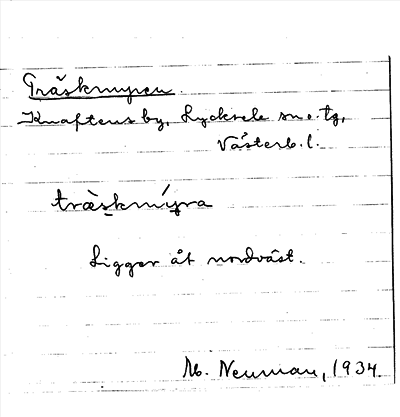 Träskmyren.
Knaftens by, Lycksele sn o. tg,
Västerb. l.
træ̀skmýra
Ligger åt nordväst.
M. Neuman, 1934.